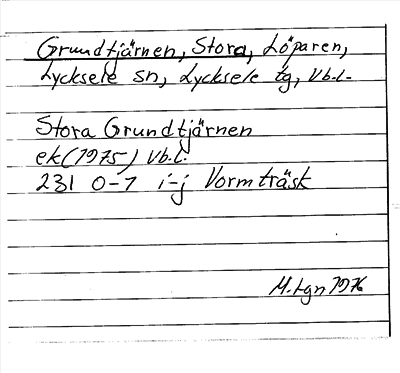 Grundtjärnen, Stora, Löparen,
Lycksele sn, Lycksele tg, Vb.l.
Stora Grundtjärnen
ek (1975) Vb.l.
231 0-1 i-j Vormträsk
M.Lgn 1976